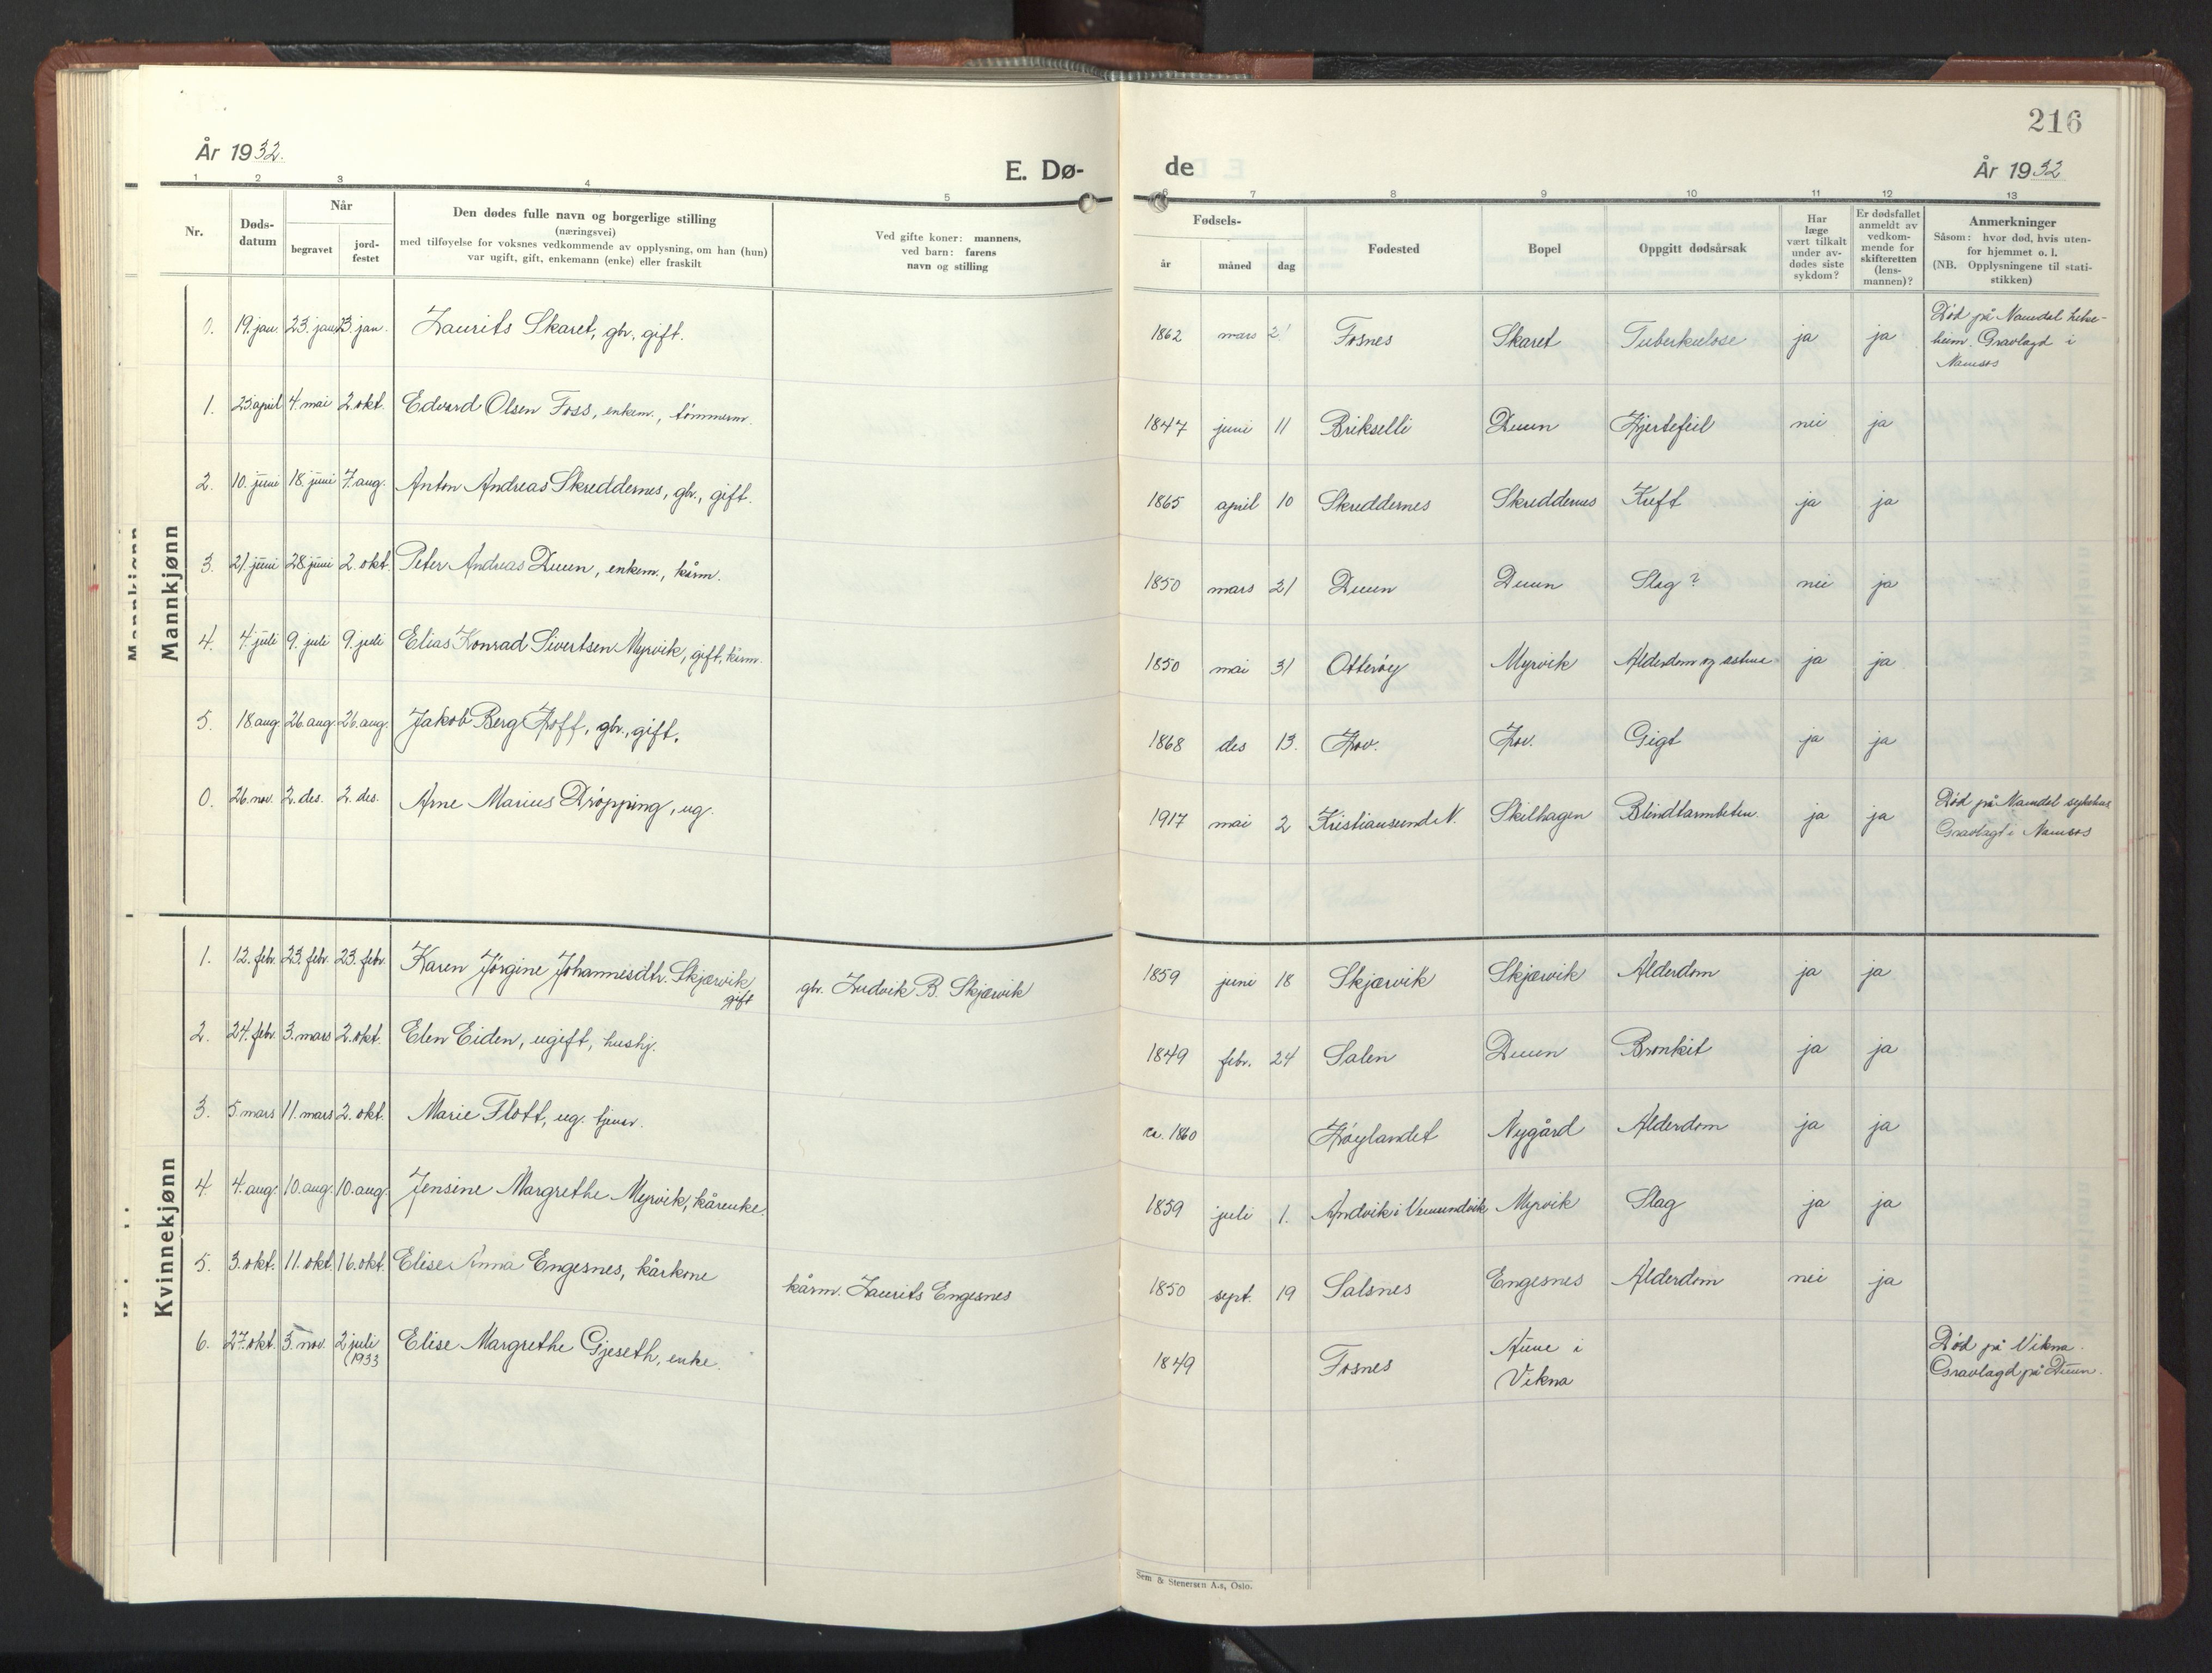 216
År 1932.
E. Dø-
de
År 1932
1 2 3 4 5
6 7 8 9 10 11 12 13
Nr.
Døds-
datum
Når
begravet
jord-
festet
Den dødes fulle navn og borgerlige stilling
(næringsvei)
med tilføyelse for voksnes vedkommende av opplysning, om han (hun)
var ugift, gift, enkemann (enke) eller fraskilt
Ved gifte koner: mannens,
ved barn: farens
navn og stilling
Fødsels-
år
måned
dag
Fødested
Bopel
Oppgitt dødsårsak
Har
læge
vært tilkalt
under av-
dødes siste
sykdom?
Er dødsfallet
anmeldt av
vedkom-
mende for
skifteretten
(lens-
mannen)?
Anmerkninger
Såsom: hvor død, hvis uten-
for hjemmet o. l.
(NB. Opplysningene til stati-
stikken)
Mannkjønn
0. 19. jan. 23. jan. 23. jan. Laurits Skaret, gbr., gift. 1862 mars Fosnes Skaret Tuberkulose ja ja
Død på Namdal helse-
heim. Gravlagd i
Namsos
1. 25. april 4. mai 2. okt. Edvard Olsen Foss, enkem., tømmerm. 1847 juni 11 Brikselli Duun Hjertefeil nei ja
2. 10. juni 18. juni 7. aug. Anton Andreas Skreddernes, gbr., gift. 1865 april 10 Skreddernes Skreddernes Kreft ja ja
3. 21. juni 28 juni 2. okt. Peter Andreas Duun, enkem., kårm. 1850 mars 31 Duun Duun Slag? nei ja
4. 4. juli 9. juli 9. juli Elias Konrad Sivertsen Myrvik, gift, kårm. 1850 mai 31 Otterøy Myrvik Alderdom og astma ja ja
5. 18 aug. 26. aug. 26. aug. Jakob Berg Hoff, gbr., gift. 1868 des 13. Hov. Hov. Gigt ja ja
0. 26. nov. 2. des. 2. des. Arne Marius Drøpping, ug. 1917 mai 2 Kristiansund N. Skilhagen Blindtarmbeten. ja ja
Død på Namdal sykehus
Gravlagt i Namsos
Kvinnekjønn
1. 12. febr. 23. febr. 23. febr. Karen Jørgine Johannesdtr. Skjærvik
gift
gbr. Ludvik B. Skjærvik 1859 juni 18 Skjærvik Skjærvik Alderdom ja ja
2. 24. febr. 3. mars 2. okt. Elen Eiden, ugift, hushj. 1849 febr. 24 Salen Duun Bronkit ja ja
3. 5 mars 11. mars 2. okt. Marie Flott, ug. tjener. ca. 1860 Høylandet Nygård Alderdom ja ja
4 4. aug. 10. aug. 10. aug. Jensine Margrethe Myrvik, kårenke. 1859 juli 1. Andvik i Vemundvik Myrvik Slag ja ja
5. 3. okt. 11. okt. 16. okt. Elise Anna Engesnes, kårkone kårm. Laurits Engesnes 1850 sept. 19 Salsnes Engesnes Alderdom nei ja
6. 27. okt. 3. nov. 2 juli
(1933
Elise Margrethe Gjeseth, enke. 1849 Fosnes Aune i
Vikna
Død på Vikna.
Gravlagd på Duun.
Sem & Stenersen A.s, Oslo.